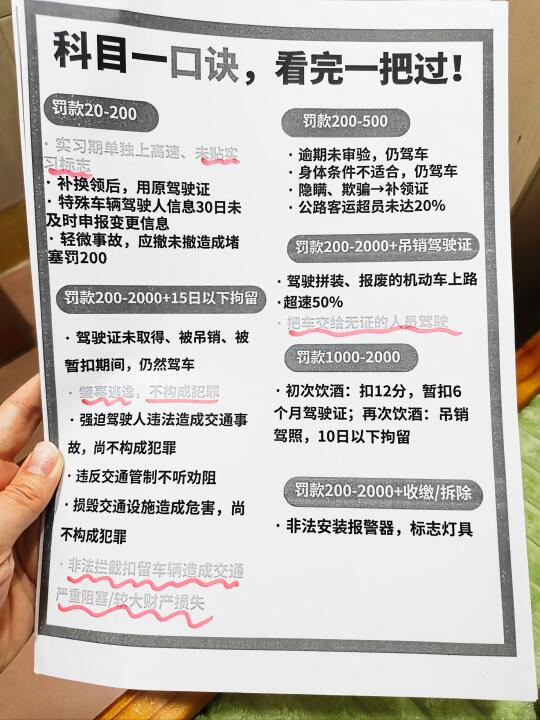 科目一口诀，看完一把过！
罚款20-200
· 实习期单独上高速、未贴实
习标志
· 补换领后，用原驾驶证
· 特殊车辆驾驶人信息30日未
及时申报变更信息
· 轻微事故，应撤未撤造成堵
塞罚200
罚款200-2000+15日以下拘留
· 驾驶证未取得、被吊销、被
暂扣期间，仍然驾车
· 肇事逃逸，不构成犯罪
· 强迫驾驶人违法造成交通事
故，尚不构成犯罪
· 违反交通管制不听劝阻
· 损毁交通设施造成危害，尚
不构成犯罪
· 非法拦截扣留车辆造成交通
严重阻塞/较大财产损失
罚款200-500
· 逾期未审验，仍驾车
· 身体条件不适合，仍驾车
· 隐瞒、欺骗→补领证
· 公路客运超员未达20%
罚款200-2000+吊销驾驶证
· 驾驶拼装、报废的机动车上路
· 超速50%
· 把车交给无证的人员驾驶
罚款1000-2000
· 初次饮酒：扣12分，暂扣6
个月驾驶证；再次饮酒：吊销
驾照，10日以下拘留
罚款200-2000+收缴/拆除
· 非法安装报警器，标志灯具